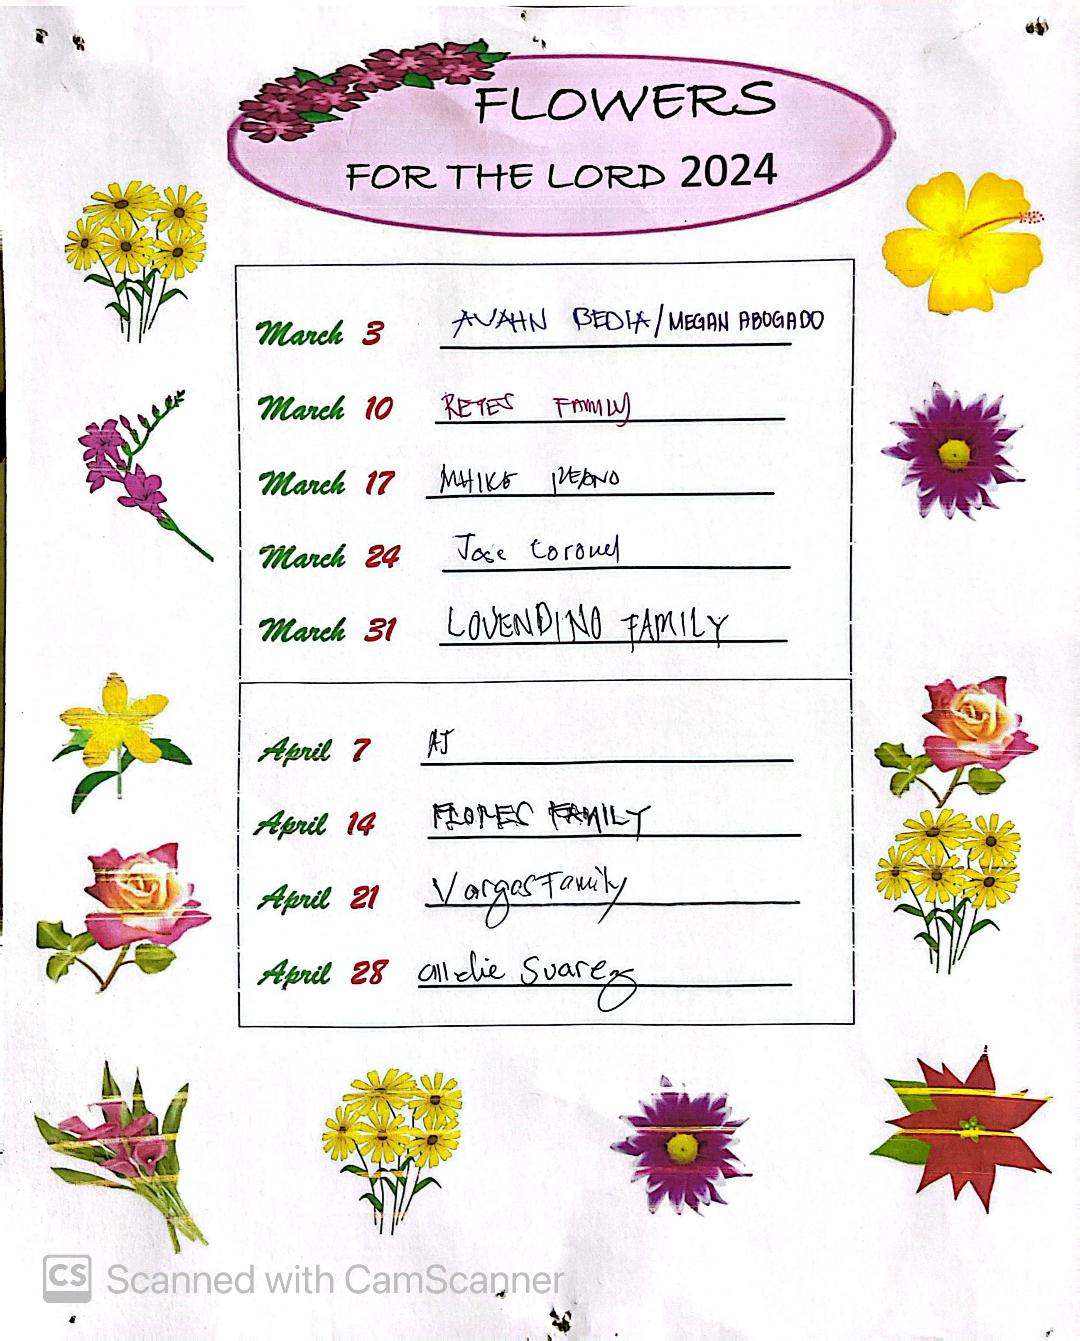 FLOWERS
FOR THE LORD 2024
March 3 AVAHN BEDIA/MEGAN ABOGADO
March 10 REYES FAMILY
March 17 MHIKE
March 24 Jose Coronel
March 31 LOVENDINO FAMILY
April 7 AJ
April 14 FLORES FAMILY
April 21 Vargas Family
April 28 Suarez
CS Scanned with CamScanner